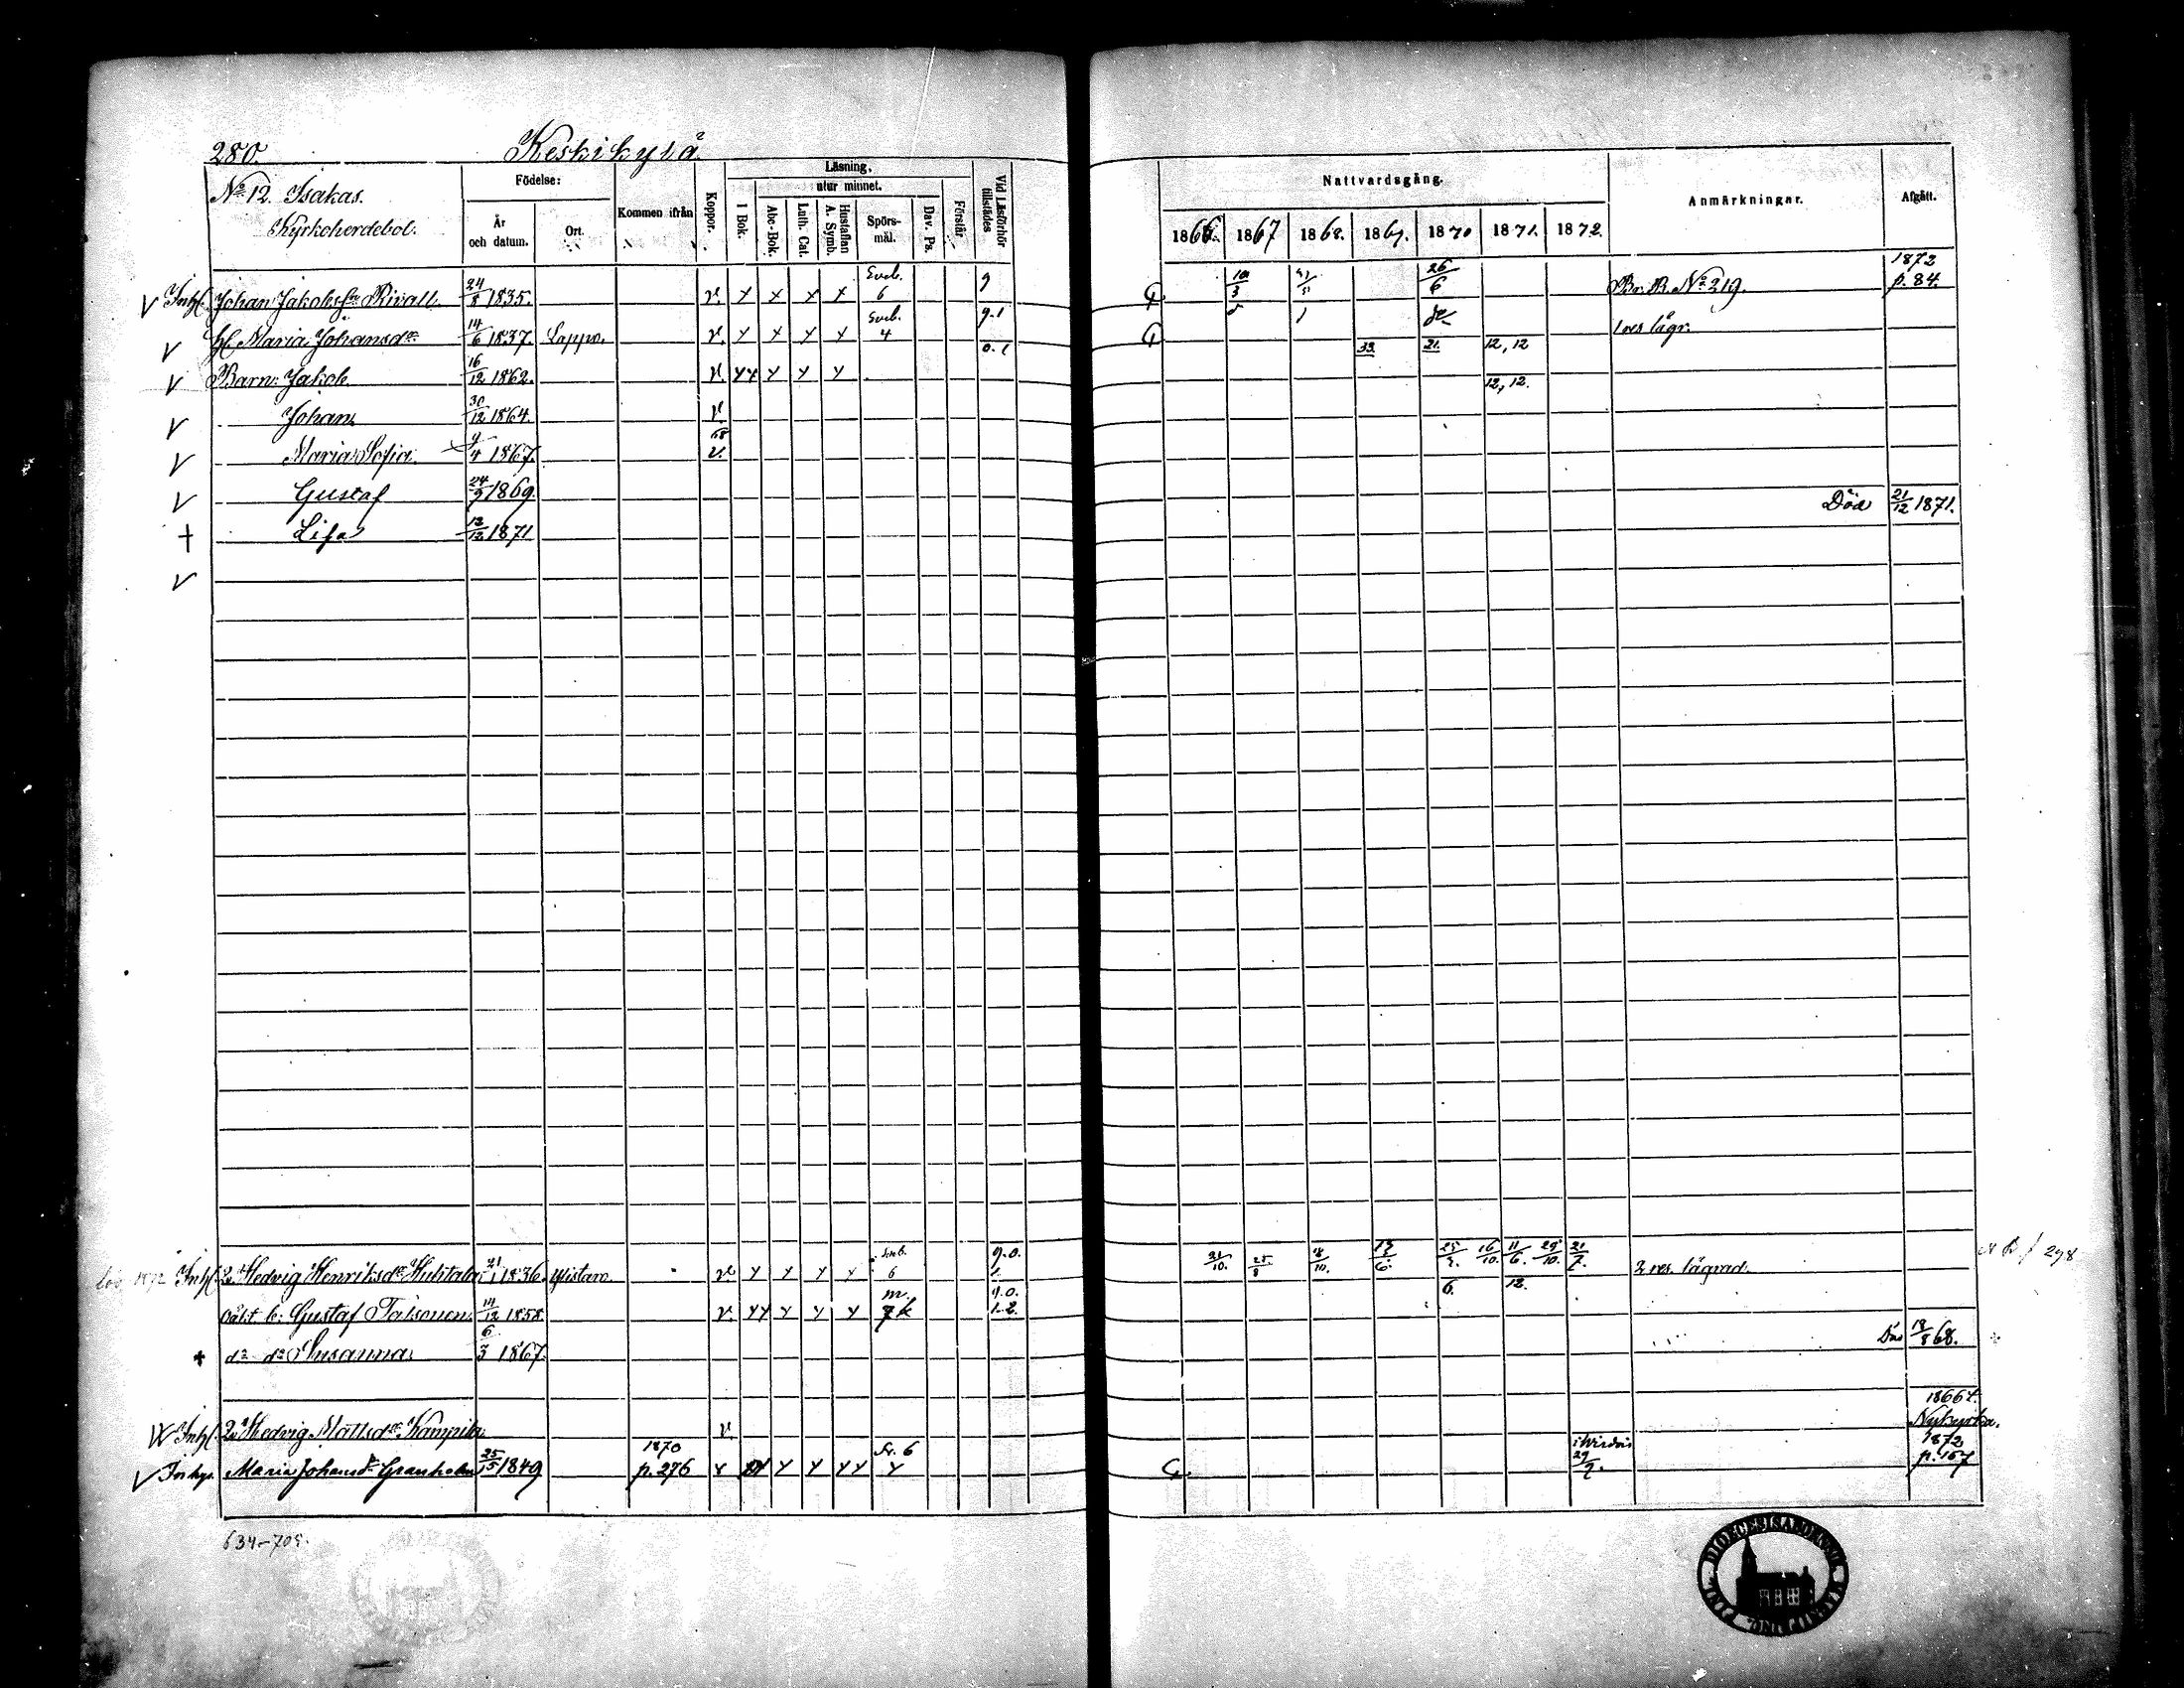 280. Keskikylä
No 12. Isakas.
Kyrkoherdebol.
Födelse:
År och datum.
Ort.
Kommen ifrån
Koppor.
Läsning,
utur minnet.
I Bok.
Abc-Bok.
Luth. Cat.
Hustaflan A. Symb.
Spörs-mål.
Dav. Ps.
Förstår
Vid Läsförhör tillstädes
Nattvardsgång.
1866. 1867 1868. 1869. 1870 1871. 1872.
Anmärkningar.
Afgått.
V Inh. Johan Jakobss:n Rivall 24/8 1835. v. x x x x Sveb. 6 9 10/3 26/6 Br. B. No 219. 1872 p. 84.
V H. Maria Johansdr 14/6 1837. Lappo. v. x x x x Sveb. 4 9.1 1 res lägr.
V Barn: Jakob 16/12 1862. v. xx x x x 0.1 33 21. 12, 12
V Johan 30/12 1864. v 12, 12.
V Maria Sofia 9/4 1867. 68 v.
V Gustaf 24/9 1869.
+ Lisa 13/12 1871 Död 21/12 1871.
V
1872 Inh. Hedvig Henriksdr Huhtala 21/1 1836. Ylistaro. v x x x x 6 9.0. 21/10. 25/8 18/10. 13/6. 25/3. 16/10. 11/6. 29/10. 21/7. 2 res. lägrad. 298
oäkt. b: Gustaf Talsonen 14/12 1858. v. xx x x x 9.0. 1.2. 6. 12.
+ do do Susanna 6/3 1867. Död 18/8 68.
Inh. Hedvig Mattsdr Kampila v. 1866 t. Nykyrka.
V Inhys. Maria Johansdr Granholm 25/5 1849 1870 p. 276 Sv. 6 i Virdois 29/9. 1872 p. 157
634-705.